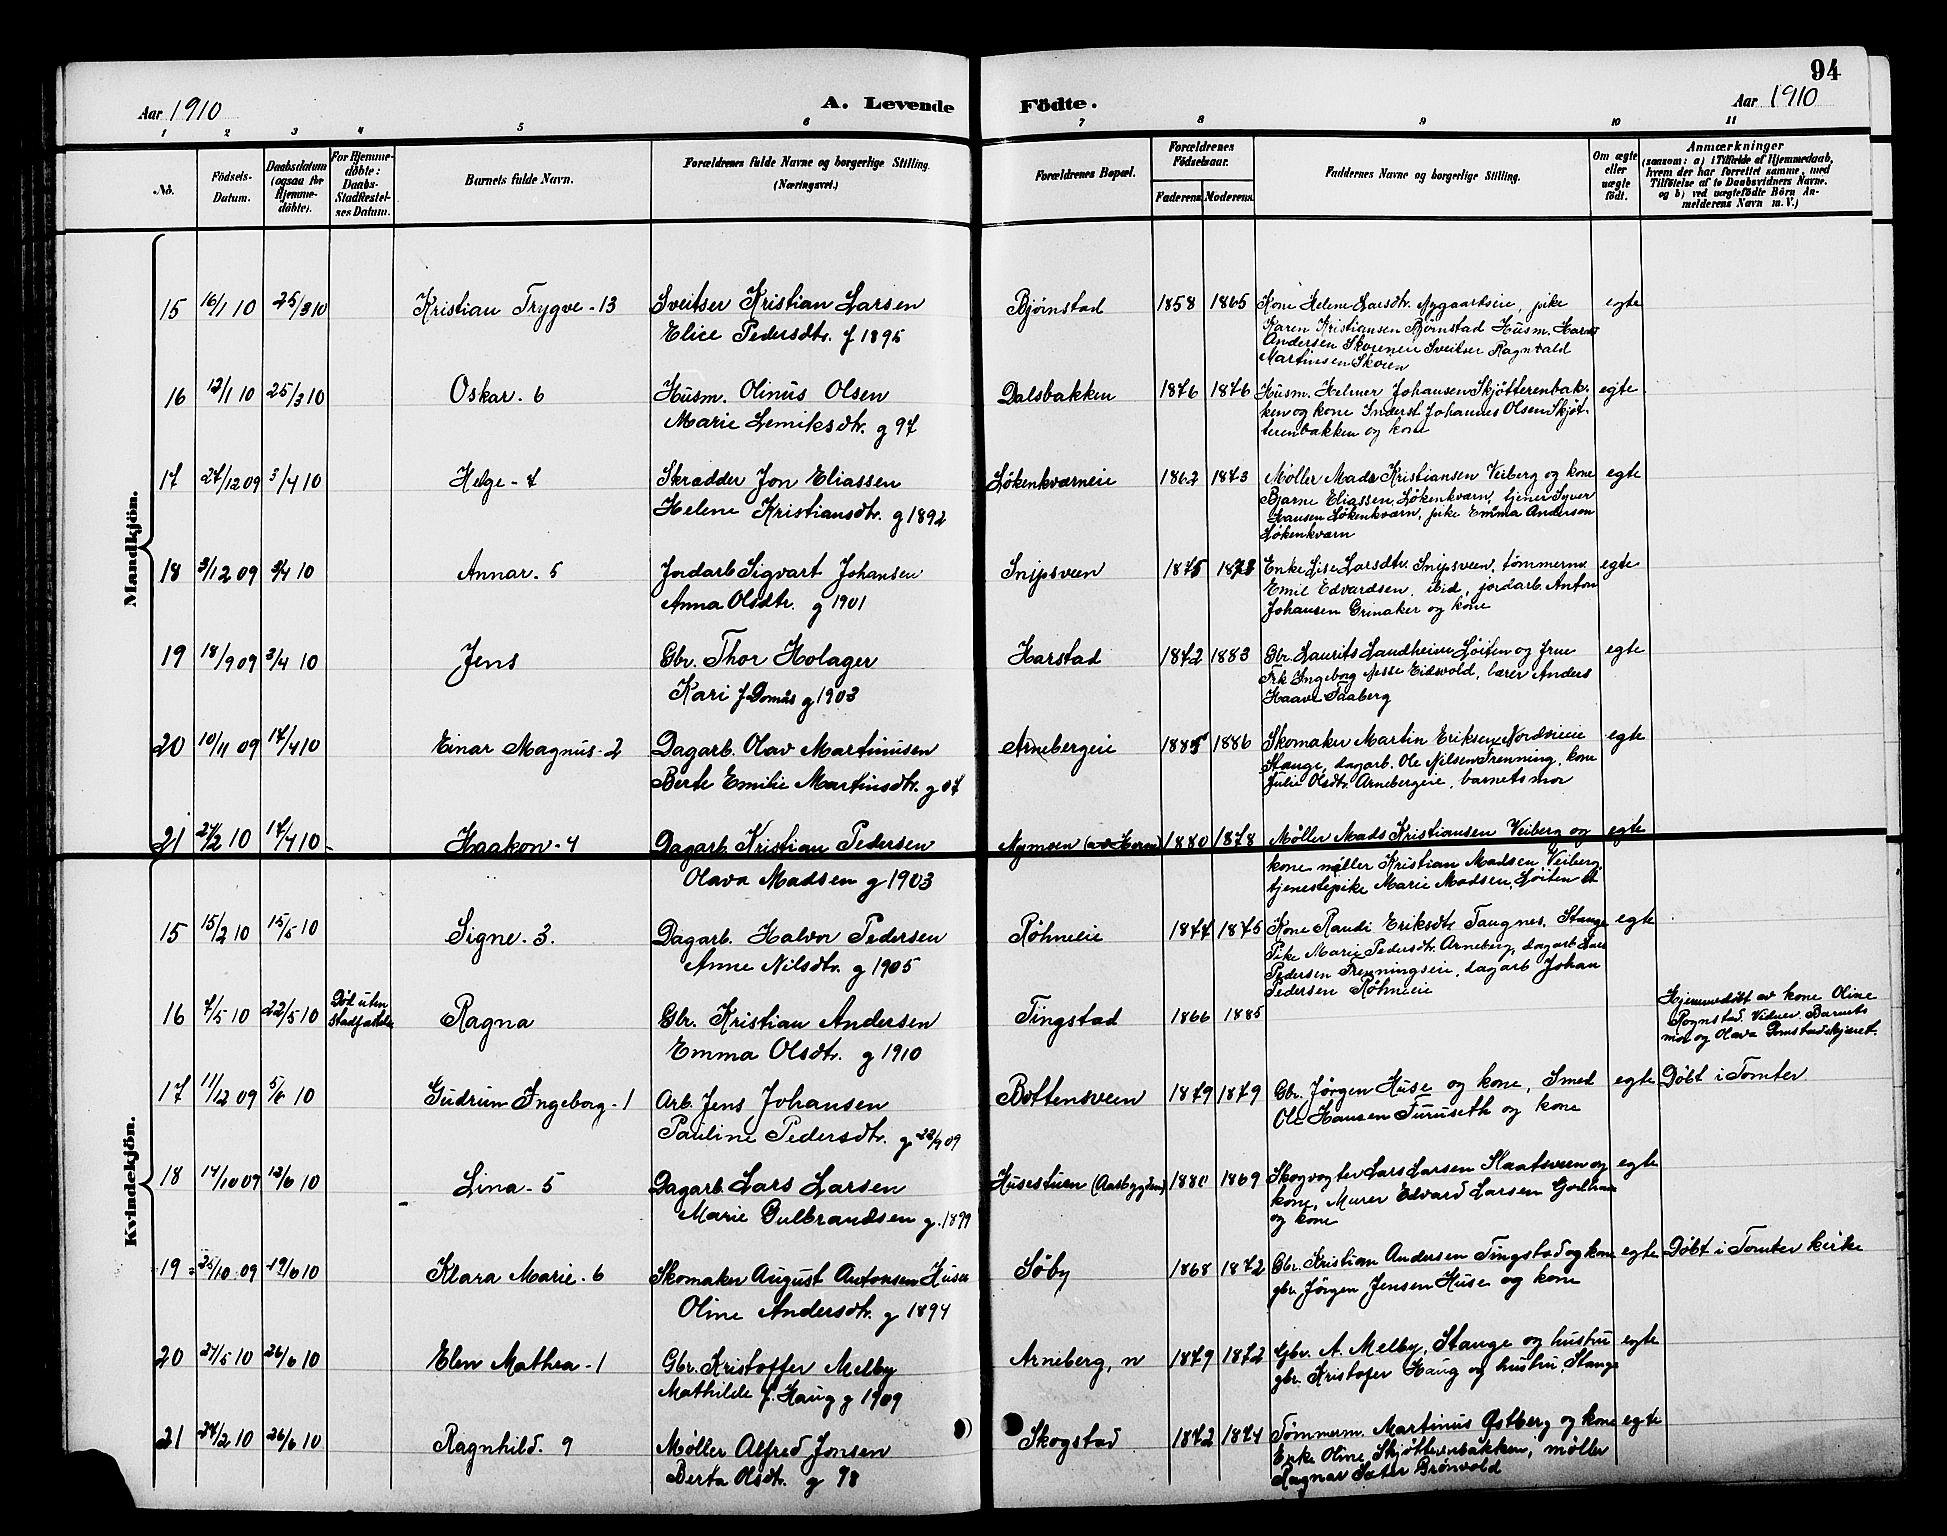 94
Aar 1910 A. Levende Födte. Aar 1910
1 2 3 4 5 6 7 8 9 10 11
No.
Födsels-Datum.
Daabsdatum (ogsaa for Hjemmedöbte).
For Hjemmedöbte: Daabs-Stadfæstelsens Datum.
Barnets fulde Navn.
Forældrenes fulde Navne og borgerlige Stilling.
(Næringsvei.)
Forældrenes Bopæl.
Forældrenes Födselsaar.
Faderens Moderens
Faddernes Navne og borgerlige Stilling.
Om ægte eller uægte födt.
Anmærkninger
(saasom: a) i Tilfælde af Hjemmedaab,
hvem der har forrettet samme, med
Tilföielse af to Daabsvidners Navne.
og b) ved uægtefödte Börn An-
melderens Navn m. V.)
Mandkjön.
15 16/1 10 25/3 10 Kristian Trygve - 13 Sveitser Kristian Larsen Bjørnstad 1858 1865 Kone Helene Larsdtr. Nygaardseie, pike egte
Elice Pedersdtr. f 1895 Karen Kristiansen Bjørnstad Husm. Harns
Andersen Skoreneie Sveitser Ragnvald
Martinsen Skoien
16 12/1 10 25/3 10 Oskar - 6 Husm. Olinus Olsen Dalsbakken 1876 1876 Husm. Helmer Johansen Skjøtterenbak- egte
Marie Lemiksdtr. g 97 ken og kone Inderst Johannes Olsen Skjøt-
terenbakken og kone
17 27/12 09 3/4 10 Helge - 7 Skrædder Jon Eliassen Løkenkværneie 1862 1873 Møller Mads Kristiansen Veiberg og kone egte
Helene Kristiansdtr. g 1892 Bjarne Eliassen Løkenkværn, tjener Syver
Hansen Løkenkværn, pike Emma Andersen
Løkenkværn
18 3/12 09 3/4 10 Annar - 5 Jordarb Sigvart Johansen Snipsveen 1875 1873 Enke Lise Larsdtr. Snipsveen, tømmerm. egte
Anna Olsdtr. g 1901 Emil Edvardsen ibid, jordarb. Anton
Johansen Grinaker og kone
19 18/9 09 3/4 10 Jens Gbr. Thor Holager Harstad 1872 1883 Gbr. Laurits Landheim Løiten og frue egte
Kari f Domås g 1903 Frk Ingeborg Eidsvold, lærer Anders
Haave Faaberg
20 10/11 09 17/4 10 Einar Magnus - 2 Dagarb. Olav Martinusen Arnebergeie 1885 1886 Skomaker Martin Eriksen Nordvieie egte
Berte Emilie Martinsdtr. g 07 Stange, dagarb. Ole Nilsen Frenning, kone
Julie Olsdtr. Arnebergeie, barnets mor
21 27/2 10 17/4 10 - Haakon - 4 Dagarb. Kristian Pedersen Nymoen 1880 1878 Møller Mads Kristiansen Veiberg og egte
Olava Madsen g 1903 kone møller Kristian Madsen Veiberg
tjenestepike Marie Madsen, Løiten
Kvindekjön.
15 15/2 10 15/5 10 Signe - 3. Dagarb. Halvor Pedersen Røhneeie 1877 1875 Kone Randi Eriksdtr Taugnes, Stange egte
Anne Nilsdtr. g 1905 Pike Marie Pedersdtr. Arneberg, dagarb. Lars
Pedersen Frenningseie, dagarb Johan
Pedersen Røhneeie
16 7/5 10 22/5 10 Død uten stadfæstelse Ragna Gbr. Kristian Andersen Tingstad 1866 1885 Hjemmedøbt av kone Oline
Emma Olsdtr. g 1910 Rognstad. Vidner Barnets
mor og Olava
17 11/12 09 5/6 10 Gudrun Ingeborg - 1 Arb. Jens Johansen Bottensveen 1879 1879 Gbr. Jørgen Huse og kone, Smed egte Døbt i Tomter
Pauline Pedersdtr. g 22/9 09 Ole Hansen Furuseth og kone
18 17/10 09 12/6 10 Lina - 5 Dagarb. Lars Larsen Husesturn (Aasbygden) 1880 1869 Skogvogter Lars Larsen Slaatsveen og egte
Marie Gulbrandsen g. 1899 kone, Murer Edvard Larsen
og kone
19 25/10 09 19/6 10 Klara Marie - 6 Skomaker August Antonsen Huse Søby 1868 1872 Gbr. Kristian Andersen Tingstad og kone egte Døbt i Tomter kirke
Oline Andersdtr. g 1894 gbr. Jørgen Jensen Huse og kone
20 27/5 10 26/6 10 Elen Mathea - 1 Gbr. Kristoffer Melby Arneberg, n 1879 1872 Gbr. A. Melby, Stange og hustru egte
Mathilde f. Haug g 1909 gbr. Kristofer Haug og hustru, Stange
21 24/2 10 26/6 10 Ragnhild. 9 Møller Alfred Jonsen Skogstad 1872 1874 Tømmerm. Martinus Østberg og kone egte
Berta Olsdtr. g 98 Enke Oline Skjøtterenbakken, møller
Ragnar Sæter Grønvold